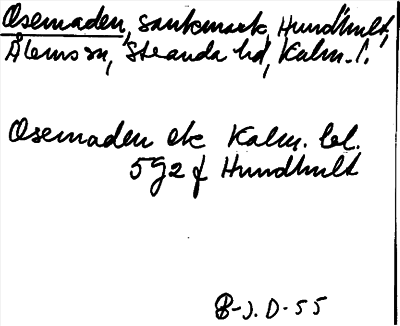 Osemaden, sankmark, Hundhult,
Ålems sn, Stranda hd, Kalm. l.
Osemaden ek Kalm. bl.
5g2f Hundhult
B-J.D-55